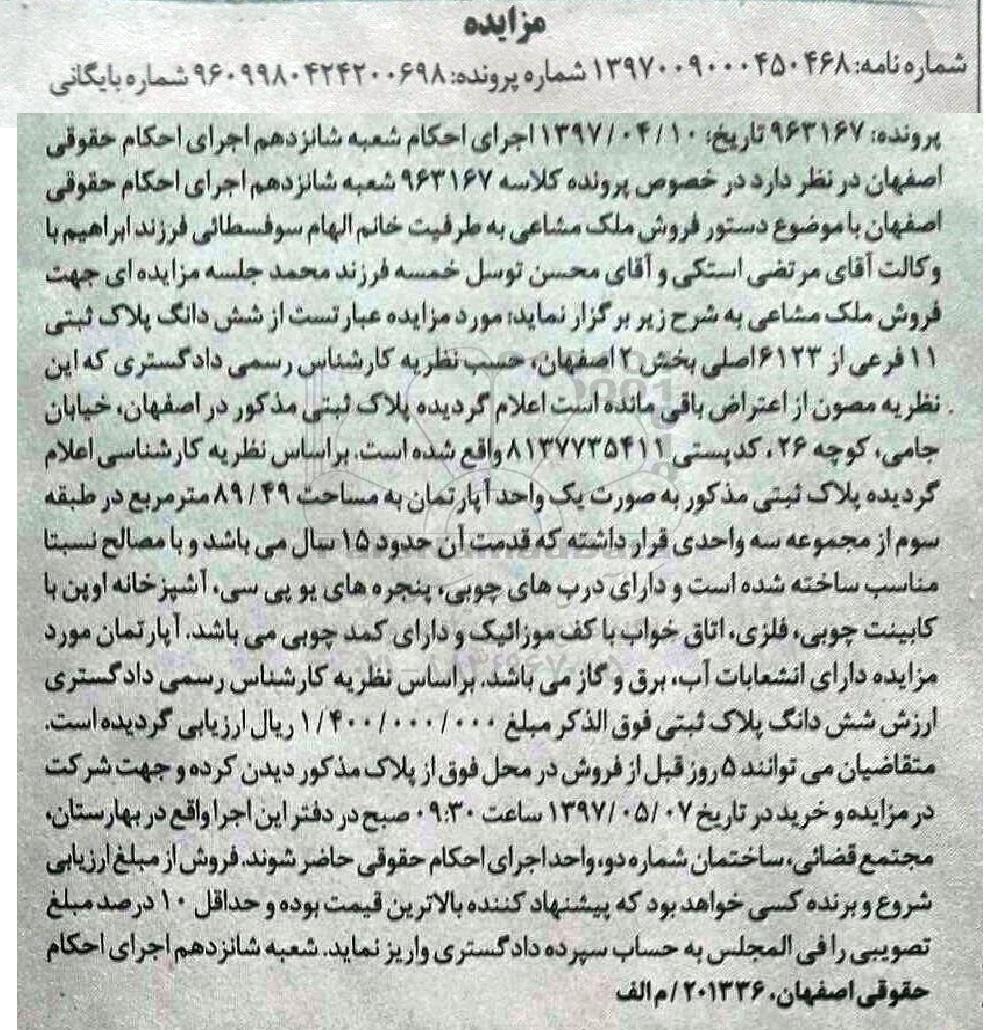 مزایده
شماره نامه: ۱۳۹۷۰۰۹۰۰۰۴۵۰۴۶۸ شماره پرونده: ۹۶۰۹۹۸۰۴۲۴۲۰۰۶۹۸ شماره بایگانی
پرونده: ۹۶۳۱۶۷ تاریخ: ۱۳۹۷/۰۴/۱۰ اجرای احکام شعبه شانزدهم اجرای احکام حقوقی
اصفهان در نظر دارد در خصوص پرونده کلاسه ۹۶۳۱۶۷ شعبه شانزدهم اجرای احکام حقوقی
اصفهان با موضوع دستور فروش ملک مشاعی به طرفیت خانم الهام سوفسطائی فرزند ابراهیم با
وکالت آقای مرتضی استکی و آقای محسن توسل خمسه فرزند محمد جلسه مزایده ای جهت
فروش ملک مشاعی به شرح زیر برگزار نماید: مورد مزایده عبارتست از شش دانگ پلاک ثبتی
۱۱ فرعی از ۶۱۲۳ اصلی بخش ۲ اصفهان، حسب نظریه کارشناس رسمی دادگستری که این
نظریه مصون از اعتراض باقی مانده است اعلام گردیده پلاک ثبتی مذکور در اصفهان، خیابان
جامی، کوچه ۲۶، کدپستی ۸۱۳۷۷۳۵۴۱۱ واقع شده است. براساس نظریه کارشناسی اعلام
گردیده پلاک ثبتی مذکور به صورت یک واحد آپارتمان به مساحت ۸۹/۴۹ مترمربع در طبقه
سوم از مجموعه سه واحدی قرار داشته که قدمت آن حدود ۱۵ سال می باشد و با مصالح نسبتا
مناسب ساخته شده است و دارای درب های چوبی، پنجره های یو پی سی، آشپزخانه اوپن با
کابینت چوبی، فلزی، اتاق خواب با کف موزائیک و دارای کمد چوبی می باشد. آپارتمان مورد
مزایده دارای انشعابات آب، برق و گاز می باشد. براساس نظریه کارشناس رسمی دادگستری
ارزش شش دانگ پلاک ثبتی فوق الذکر مبلغ ۱/۴۰۰/۰۰۰/۰۰۰ ریال ارزیابی گردیده است.
متقاضیان می توانند ۵ روز قبل از فروش در محل فوق از پلاک مذکور دیدن کرده و جهت شرکت
در مزایده و خرید در تاریخ ۱۳۹۷/۰۵/۰۷ ساعت ۰۹:۳۰ صبح در دفتر این اجرا واقع در بهارستان،
مجتمع قضائی، ساختمان شماره دو، واحد اجرای احکام حقوقی حاضر شوند. فروش از مبلغ ارزیابی
شروع و برنده کسی خواهد بود که پیشنهاد کننده بالاترین قیمت بوده و حداقل ۱۰ درصد مبلغ
تصویبی را فی المجلس به حساب سپرده دادگستری واریز نماید. شعبه شانزدهم اجرای احکام
حقوقی اصفهان. ۲۰۱۳۳۶/م الف